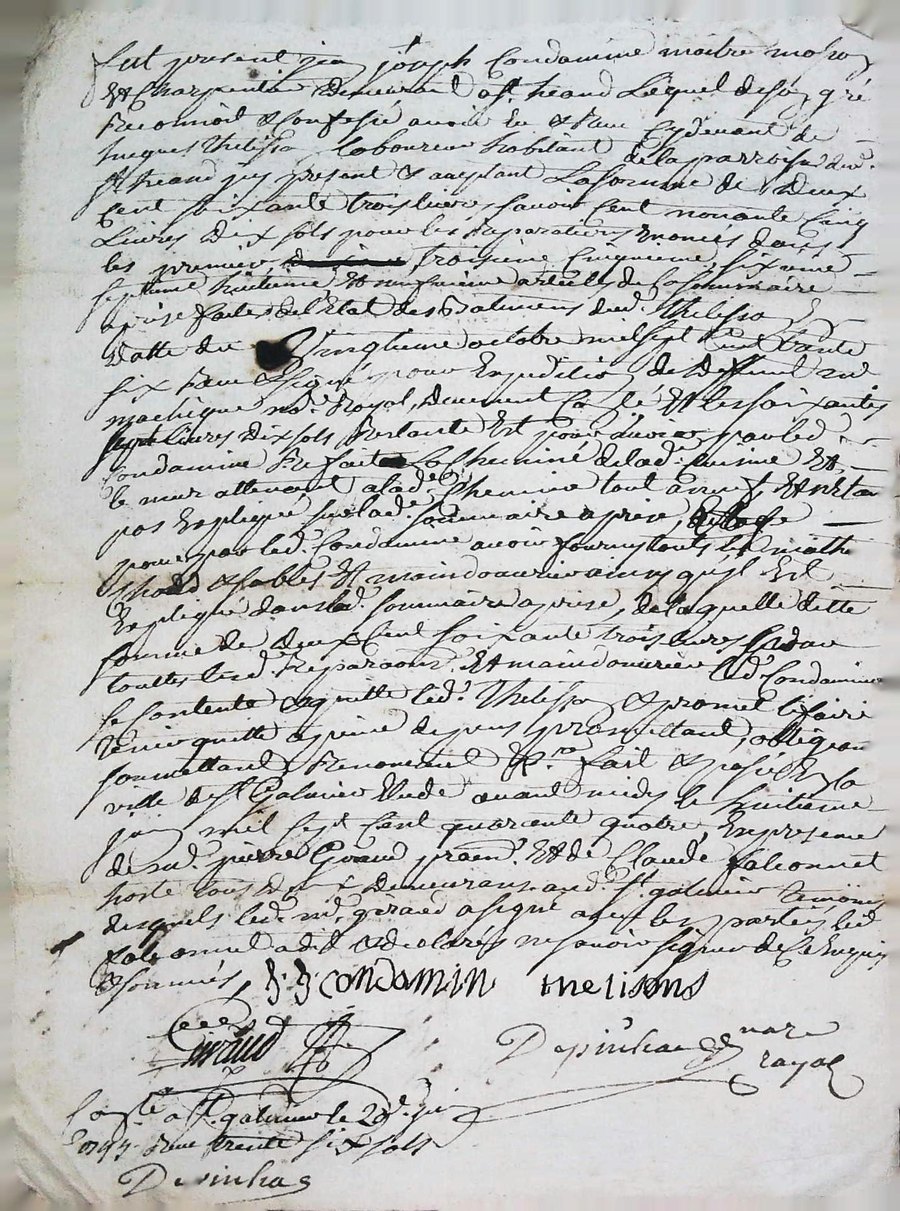 fut present sieur joseph Condamine maitre mason
Et Charpentier demeurant a st heand Lequel de son gré
Reconnoit & confesse avoir Eu & Receu Cydevant de
hugues thelisson laboureur habitant de la parroisse dud.
st heand icy present & acceptant La somme de deux
Cent soixante trois livres savoir Cent nonante Cinq
Livres dix sols pour les Reparations Enoncés dans
les premier troisieme Cinquieme, sixieme
septieme huitieme Et neufvieme articles de la sommaire
aprise faite de l'Etat des Batimens dud. thelisson En
Datte du Vingtieme octobre mil sept Cent trente
six Receu & signé pour Expedition de
nore. Royal, duement Controlé Et les soixantes
sept livres dix sols Restante Est pour avoir par led.
Condamine Refait la Cheminé de lad. cuisine Et
le mur attenant a lad. Cheminé tout a neuf, Et n'Etan
pas Expliqué sur lad. sommaire aprise,
pour par led. Condamine avoir fourny touts les
chaud & sables Et maind'ouvrier ainsy qu'il Est
Expliqué dans lad. sommaire aprise, de laquelle ditte
somme de deux Cent soixante trois livres
touttes lesd. Reparaons. Et maind'ouvrier led. Condamine
se Contente & quitte led. thelisson & promet le faire
tenir quitte a peine de peins promettant, obligean
soumettant & Renonceant &a. fait & passé En la
ville de st Galmier Etude avant midy le huitieme
juin mil sept Cent quarente quatre, En presence
de me. pierre Giraud pratn. Et de Claude falconnet
hoste tous deux demeurans aud. st galmier temoins
desquels led. me. giraud a signé avec les parties, led.
falconnet a dit & declaré ne savoir signer de Ce Enquis
& sommés, J. J condamin thelisons
Giraud Depinhac nore
royal
Contlé a st galmier le 20e. juin
1744. Receu trente six sols
Depinhac